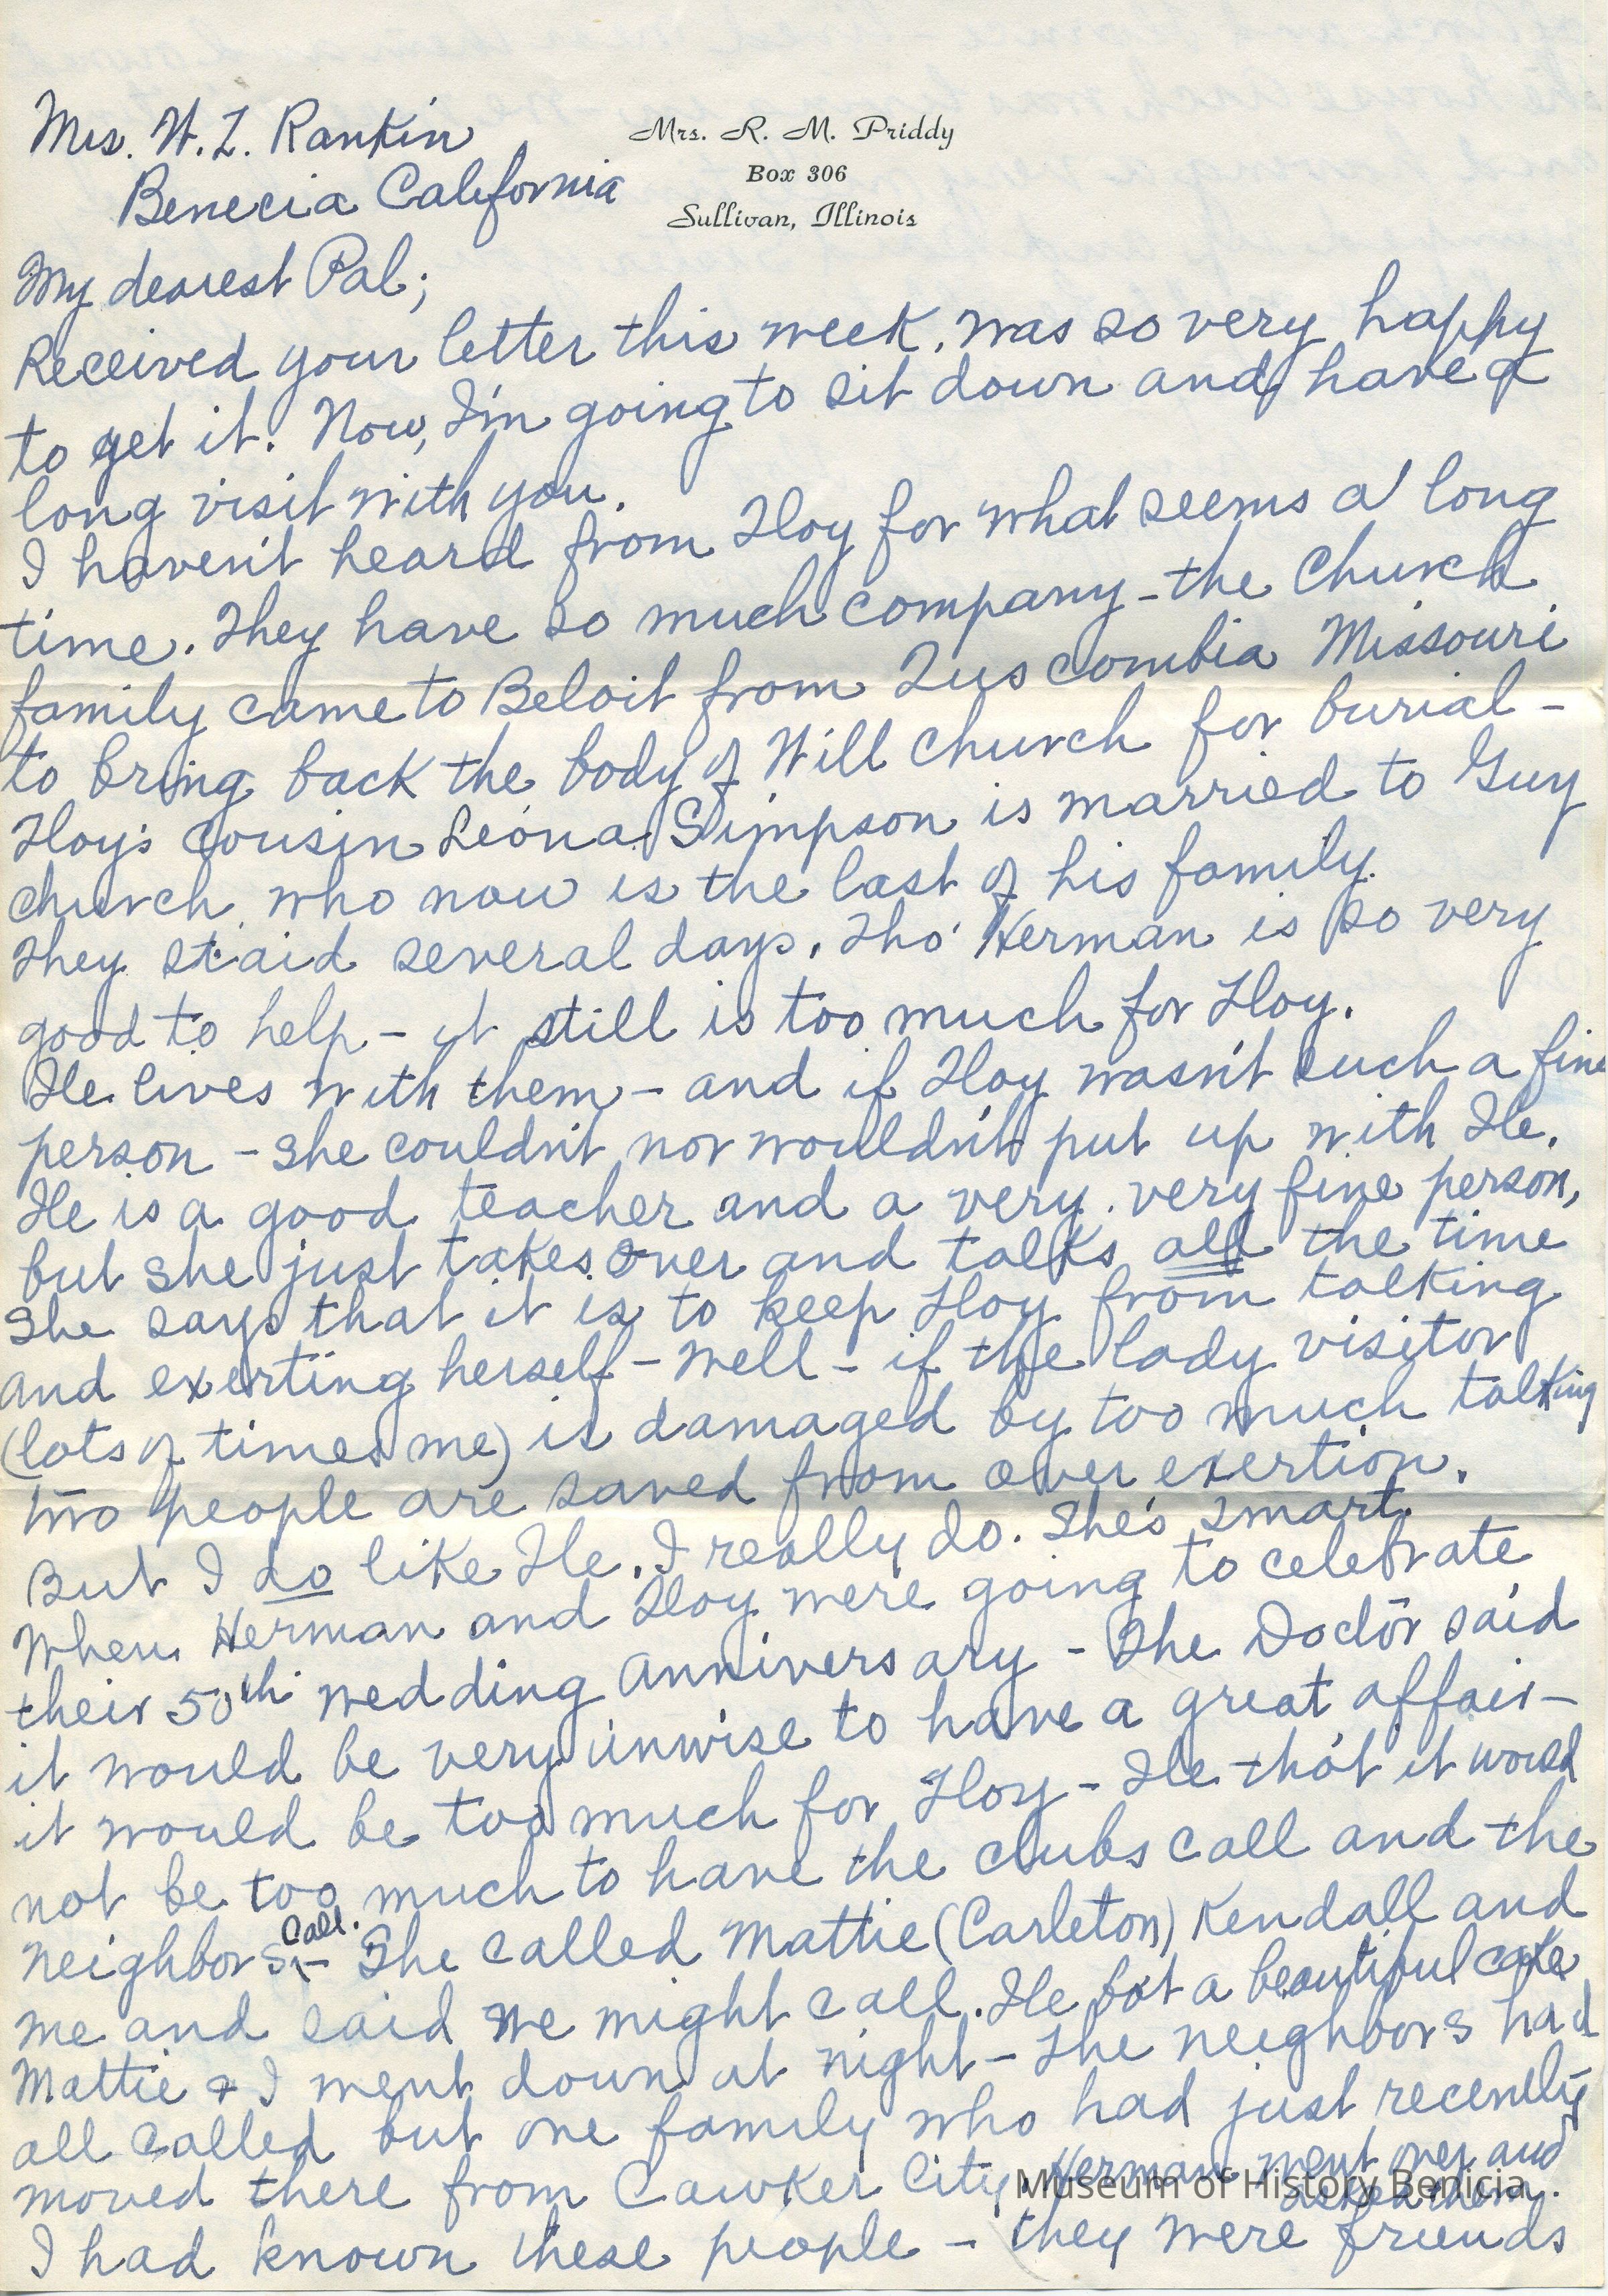 Mrs. W. L. Rankin
Benecia California
Mrs. R. M. Priddy
Box 306
Sullivan, Illinois
My dearest Pal;
Received your letter this week, was so very happy
to get it. Now, I'm going to sit down and have a
long visit with you.
I haven't heard from Floy for what seems a long
time. They have so much company - the Church
family came to Beloit from Tuscombia Missouri
to bring back the body of Will Church for burial -
Floy's cousin Leona Simpson is married to Guy
Church who now is the last of his family.
They staid several days. Tho' Herman is so very
good to help - it still is too much for Floy.
Fle lives with them - and if Floy wasn't such a fine
person - she couldn't nor wouldn't put up with Fle.
Fle is a good teacher and a very. very fine person,
but she just takes over and talks all the time
She says that it is to keep Floy from talking
and exerting herself - Well - if the lady visitor
(lots of times me) is damaged by too much talking
two people are saved from over exertion.
But I do like Fle. I really do. She's smart.
When Herman and Floy were going to celebrate
their 50th wedding anniversary - The Doctor said
it would be very unwise to have a great affair -
it would be too much for Floy - Fle tho't it would
not be too much to have the clubs call and the
neighbors call. - She called Mattie (Carleton) Kendall and
me and said we might call. Fle bot a beautiful cake
Mattie & I went down at night - The neighbors had
all called but one family who had just recently
moved there from Cawker City. Herman went over and
asked them.
I had known these people - they were friends
Museum of History Benicia